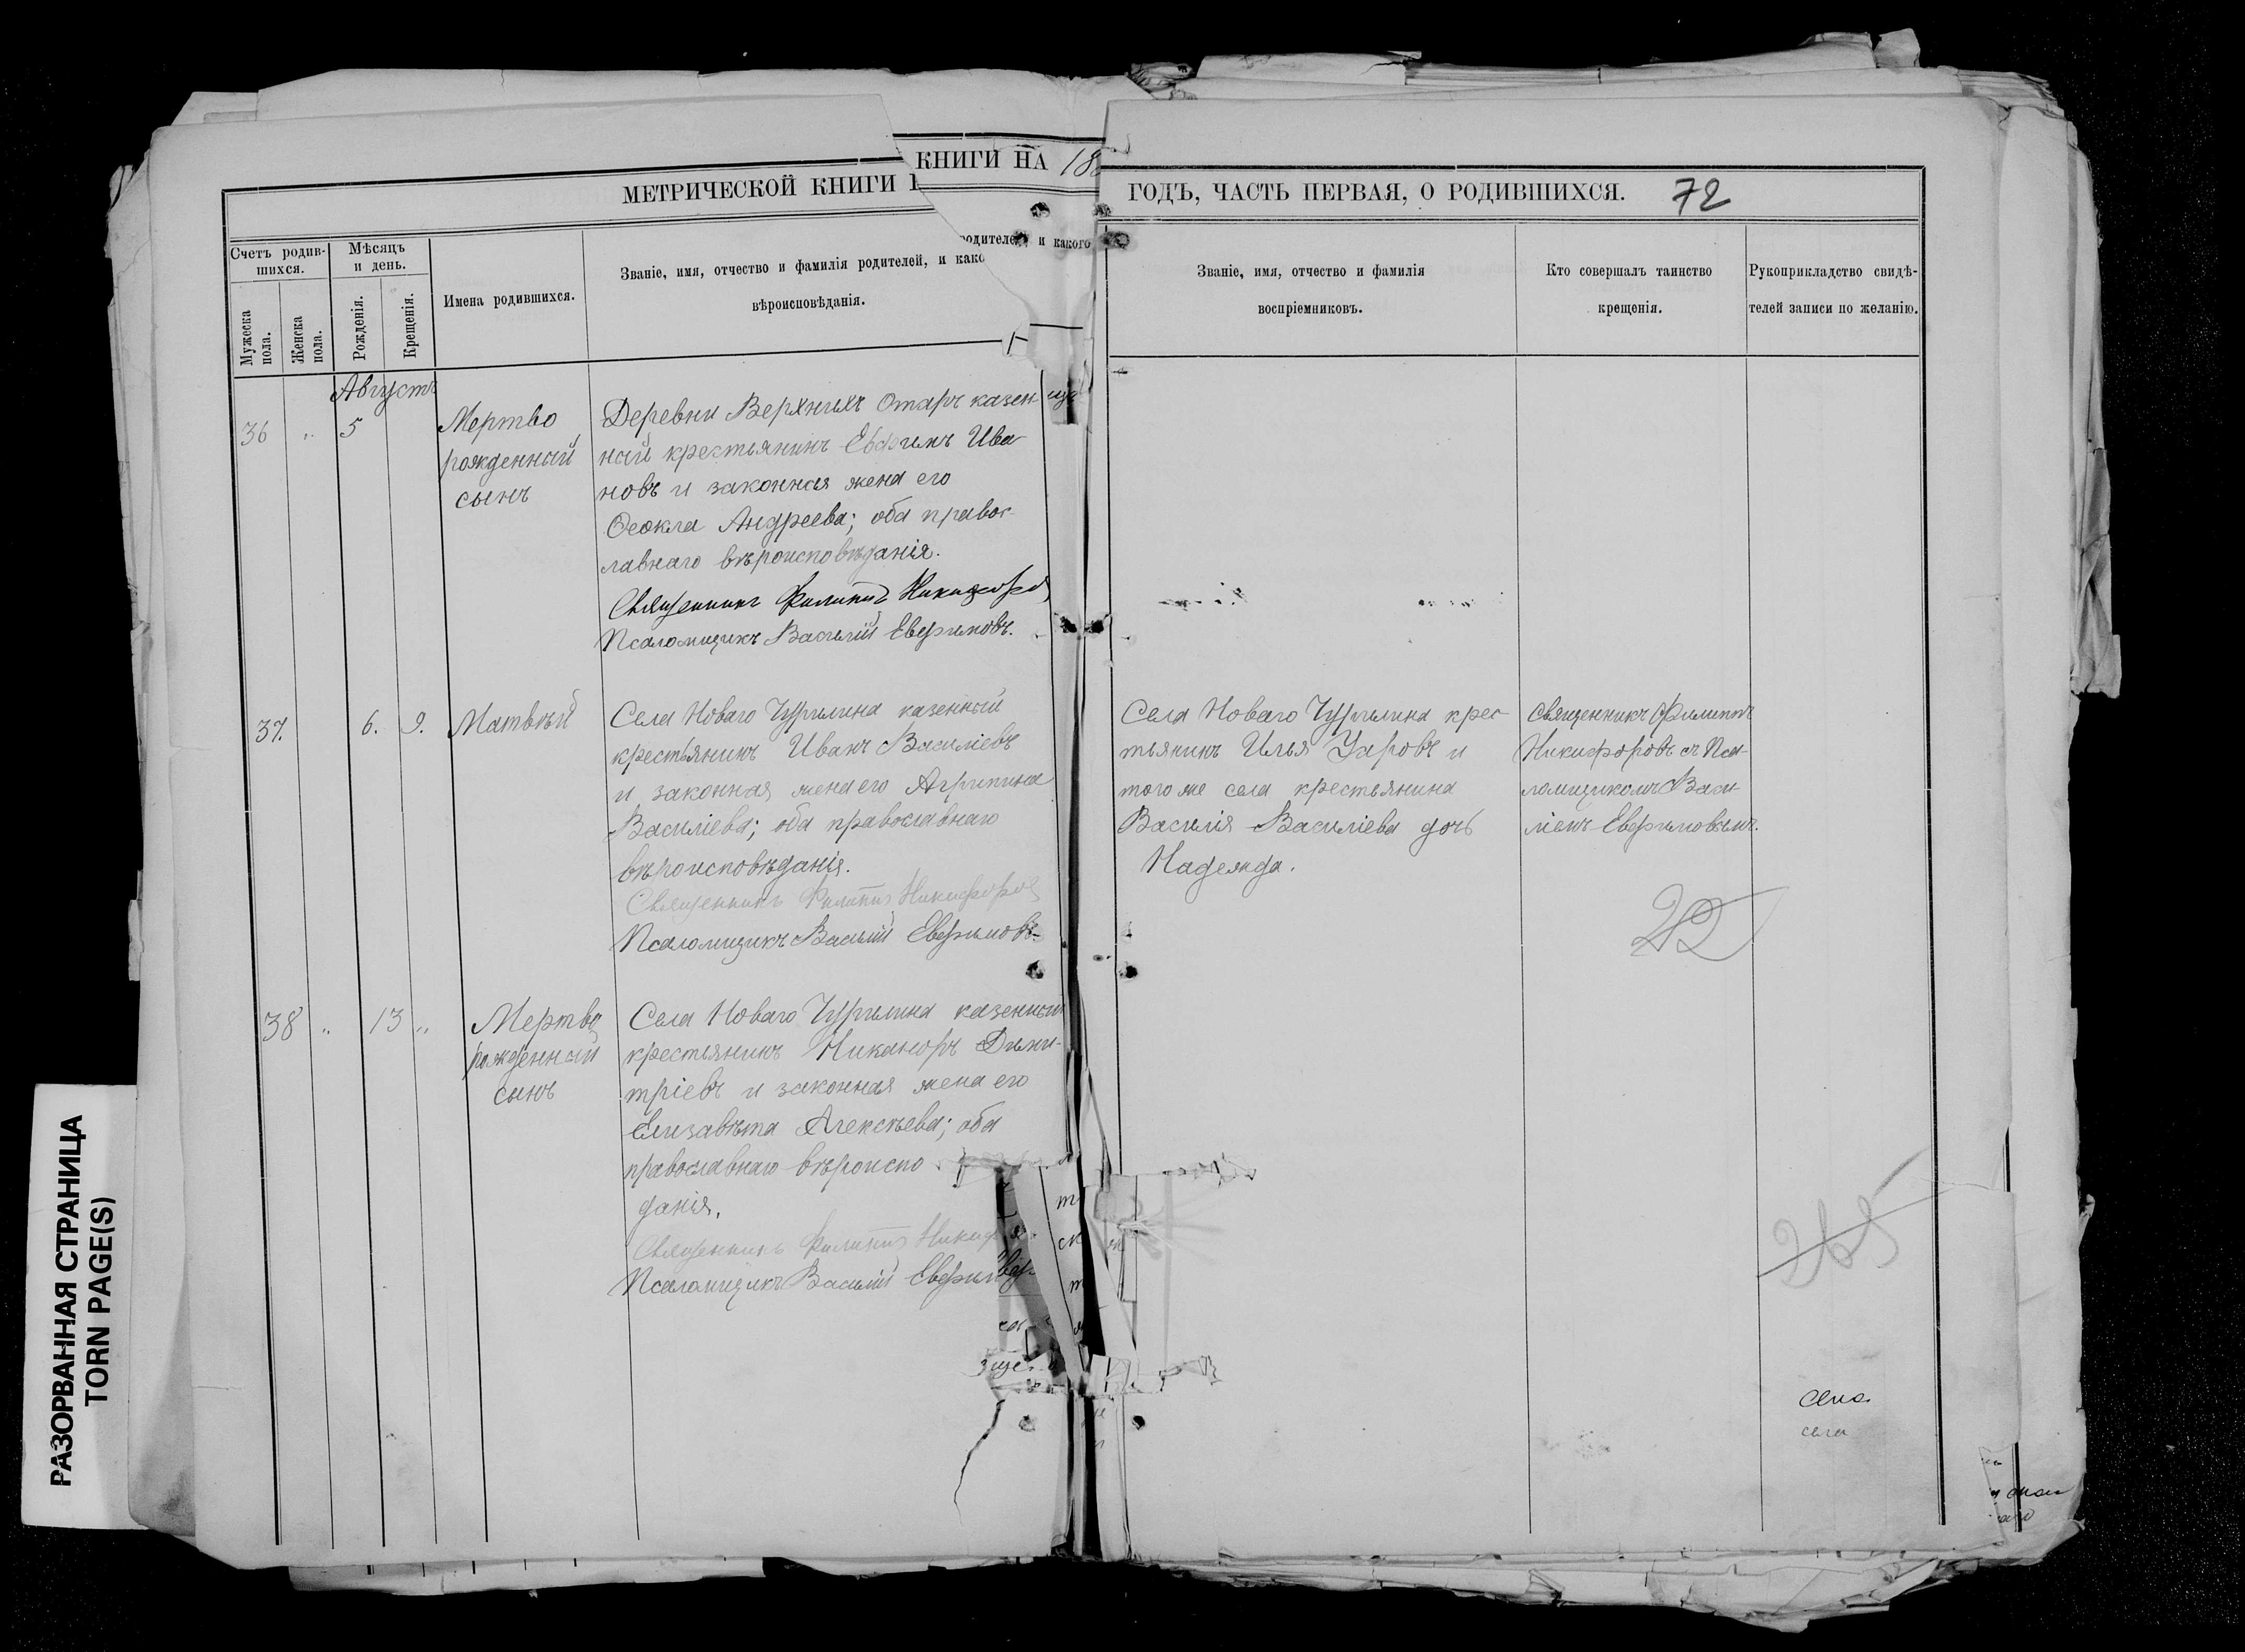 КНИГИ НА 18
МЕТРИЧЕСКОЙ КНИГИ
ГОДЪ, ЧАСТЬ ПЕРВАЯ, О РОДИВШИХСЯ. 72
Счетъ родив-
шихся.
Мужеска
пола.
Женска
пола.
Мѣсяцъ
и день.
Рожденія.
Крещенія.
Имена родившихся.
Званіе, имя, отчество и фамилія родителей, и како
вѣроисповѣданія.
родителей, и какого
Званіе, имя, отчество и фамилія
воспріемниковъ.
Кто совершалъ таинство
крещенія.
Рукоприкладство свидѣ-
телей записи по желанію.
Августъ
36 „ 5
Мертво
рожденный
сынъ
Деревни Верхнихъ Отаръ казен-
ный крестьянинъ Евфимъ Ива
новъ и законная жена его
Ѳеокла Андреева; оба правос-
лавнаго вѣроисповѣданія.
Священникъ Филиппъ Никифоров
Псаломщикъ Василій Евфимовъ.
37. 6. 9. Матвѣй
Села Новаго Чурилина казенный
крестьянинъ Иванъ Василіевъ
и законная жена его Агрипина
Василіева; оба православнаго
вѣроисповѣданія.
Священникъ Филиппъ Никифоров
Псаломщикъ Василій Евфимовъ.
Села Новаго Чурилина крес-
тьянинъ Илья Уаровъ и
того же села крестьянина
Василія Василіева дочь
Надежда.
Священникъ Филиппъ
Никифоровъ съ Пса-
ломщикомъ Васи-
ліемъ Евфимовымъ.
38 „ 13 „
Мертво
рожденный
сынъ
Села Новаго Чурилина казенный
крестьянинъ Никаноръ Дими-
тріевъ и законная жена его
Елизавета Алексѣева; оба
православнаго вѣроиспо
данія.
Священникъ Филиппъ Никиф
Псаломщикъ Василій Евфим
265
села
РАЗОРВАННАЯ СТРАНИЦА
TORN PAGE(S)